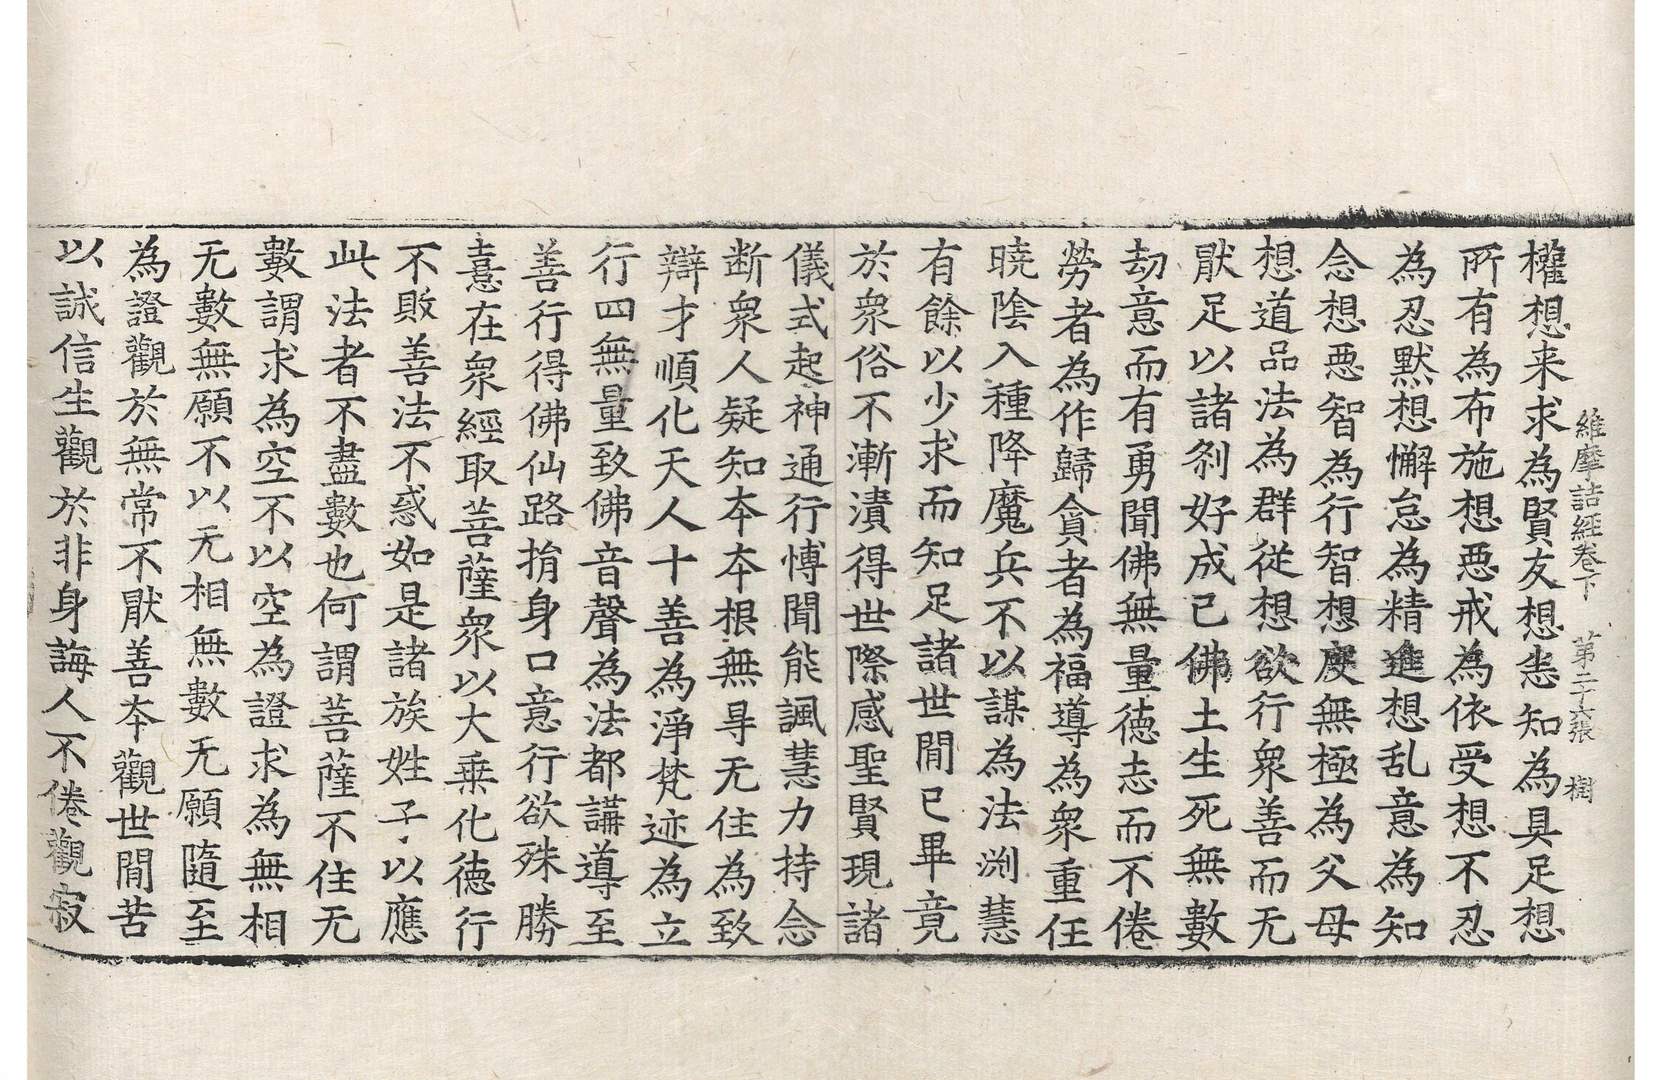 維摩詰經卷下　第二十六張　樹
權想来求為賢友想恚知為具足想
所有為布施想惡戒為依受想不忍
為忍默想懈怠為精進想乱意為知
念想惡智為行智想度無極為父母
想道品法為群従想欲行衆善而无
猒足以諸刹好成已佛土生死無數
劫意而有勇聞佛無量德志而不倦
勞者為作歸貪者為福導為衆重任
曉陰入種降魔兵不以謀為法渕慧
有餘以少求而知足諸世間已畢竟
於衆俗不漸漬得世際感聖賢現諸
儀式起神通行愽聞能諷慧力持念
断衆人疑知夲夲根無㝵无住為致
辯才順化天人十善為淨梵迹為立
行四無量致佛音聲為法都講導至
善行得佛仙路捐身口意行欲殊勝
憙在衆經取菩薩衆以大乗化德行
不敗善法不惑如是諸族姓子以應
此法者不盡數也何謂菩薩不住无
數謂求為空不以空為證求為無相
无數無願不以无相無數无願隨至
為證觀於無常不猒善夲觀世間苦
以誠信生觀於非身誨人不倦觀寂